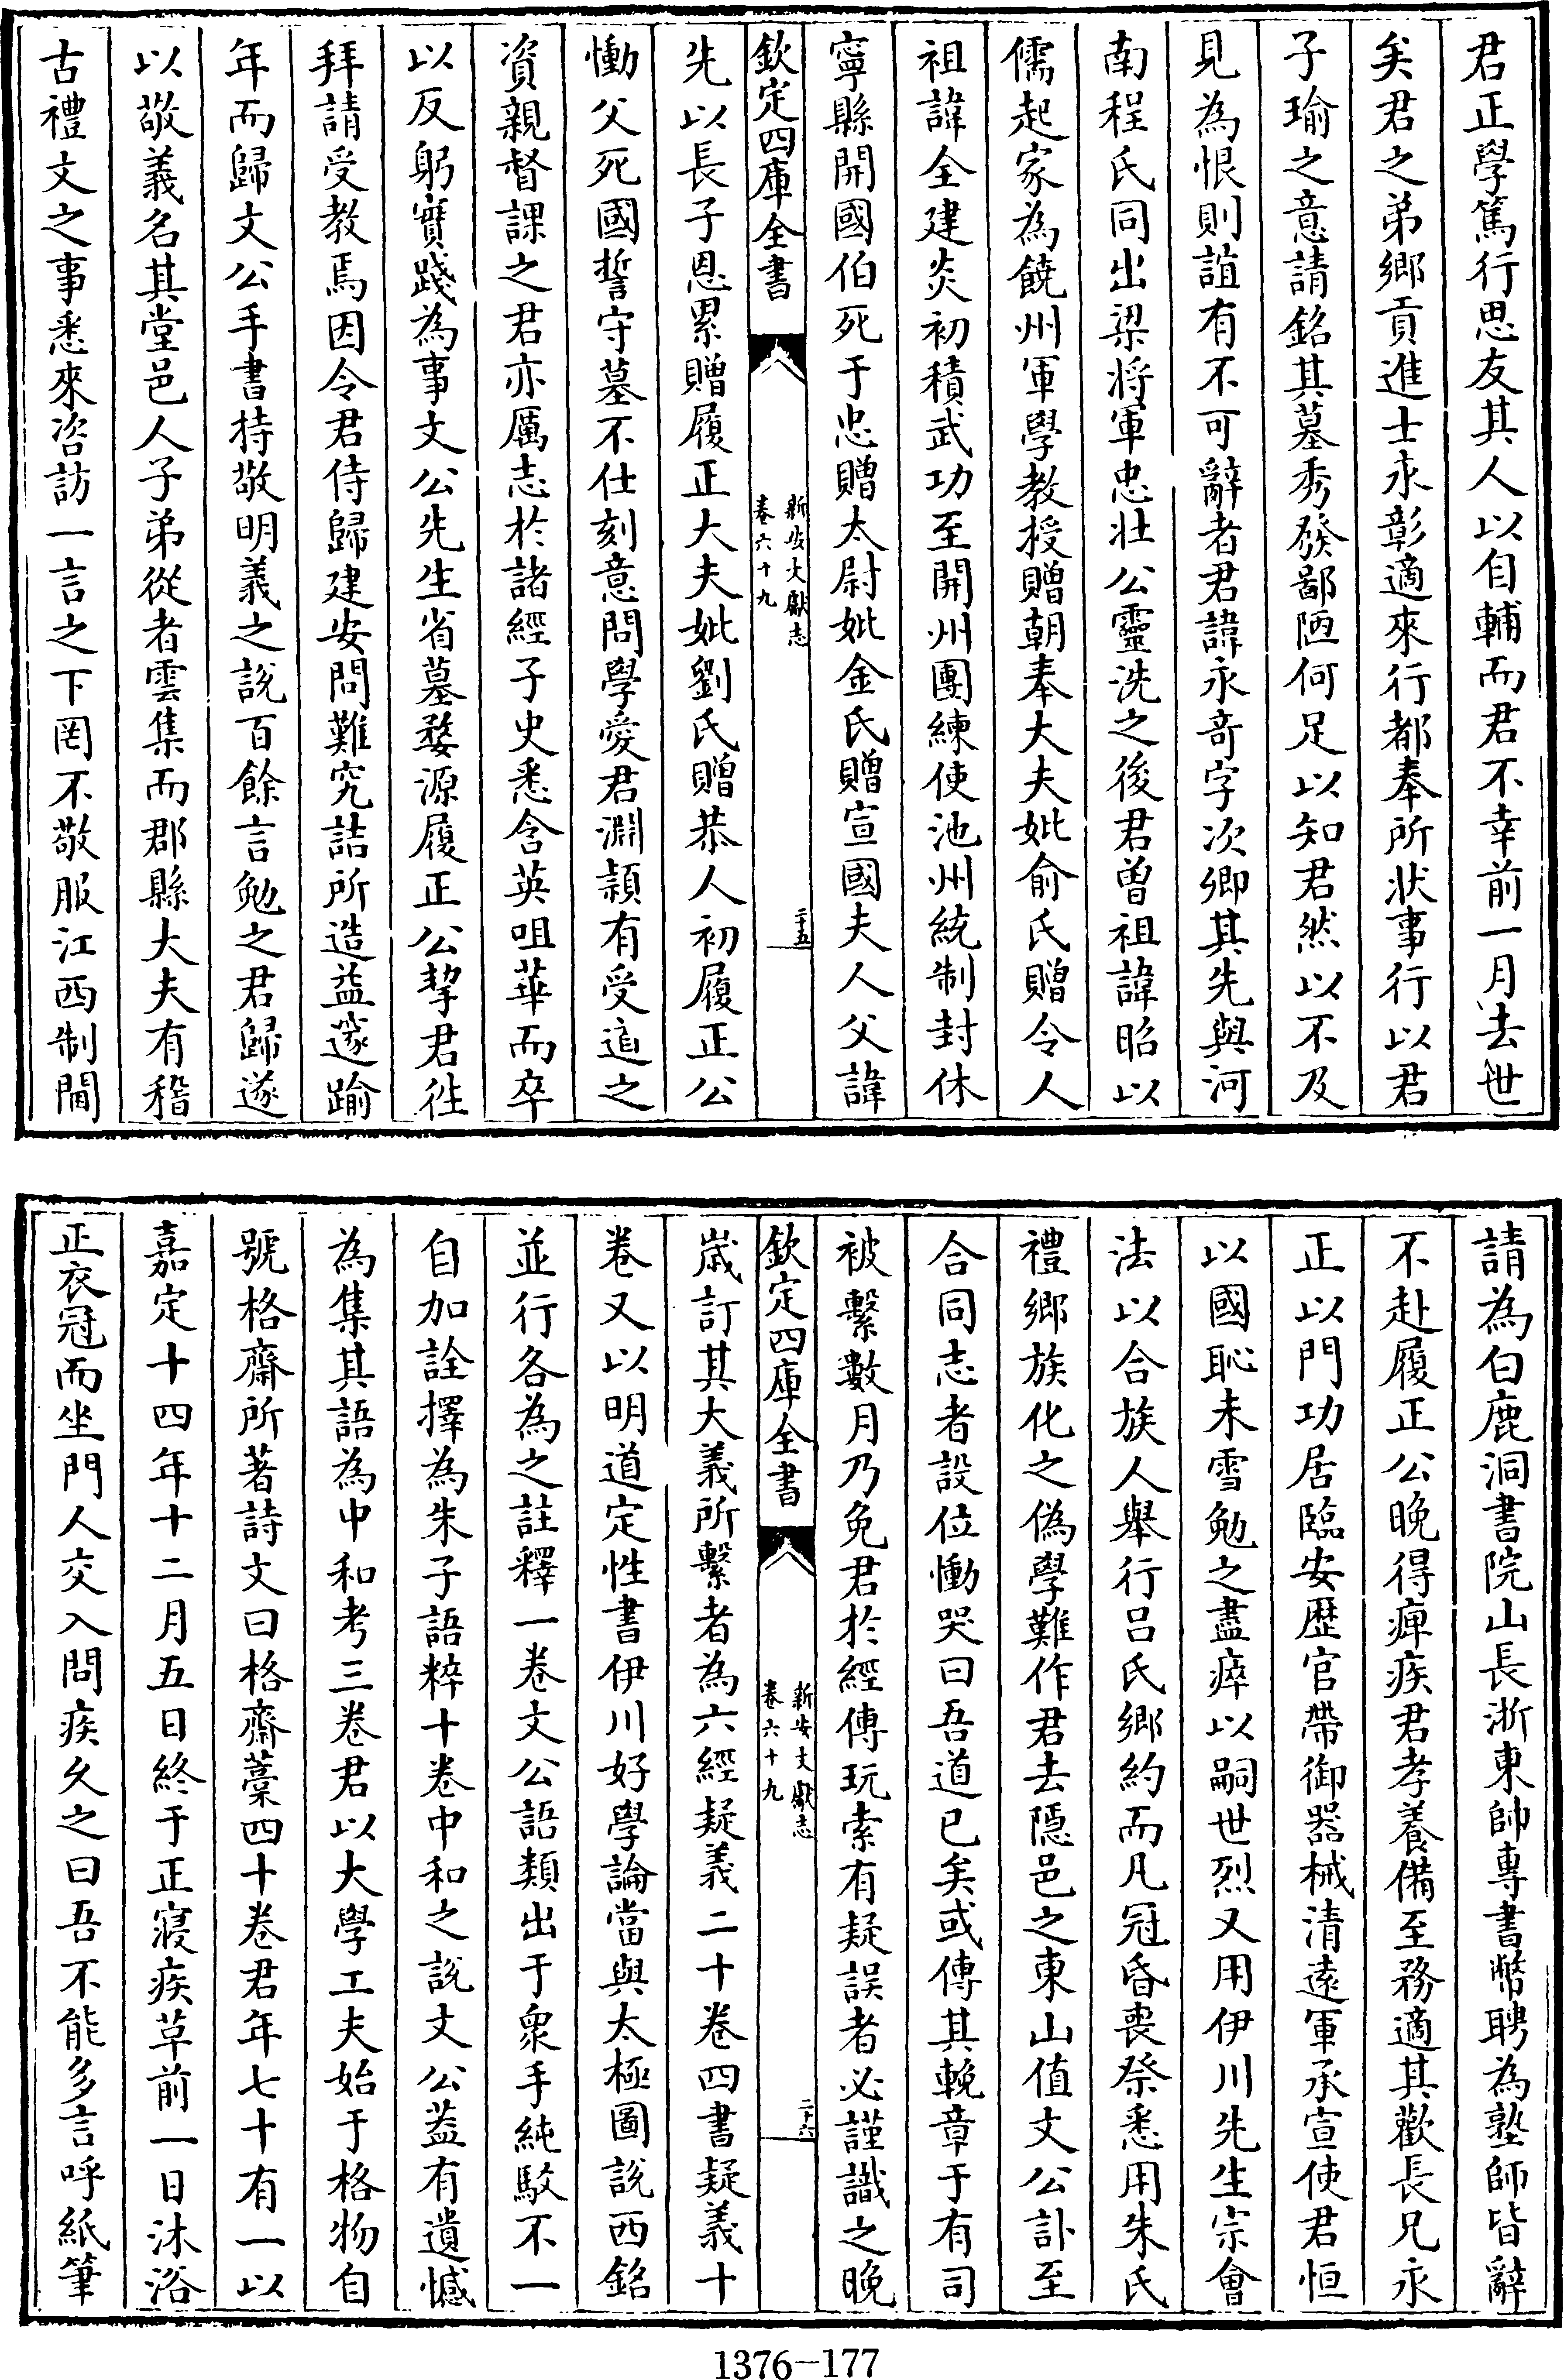 君正學篤行思友其人以自輔而君不幸前一月去世
矣君之弟鄉貢進士永彰適來行都奉所狀事行以君
子瑜之意請銘其墓秀發鄙陋何足以知君然以不及
見為恨則誼有不可辭者君諱永奇字次卿其先與河
南程氏同出梁將軍忠壯公靈洗之後君曾祖諱昭以
儒起家為饒州軍學教授贈朝奉大夫妣俞氏贈令人
祖諱全建炎初積武功至開州團練使池州統制封休
寧縣開國伯死于忠贈太尉妣金氏贈宣國夫人父諱
欽定四庫全書
新安文獻志
卷六十九
二十五
先以長子恩累贈履正大夫妣劉氏贈恭人初履正公
慟父死國誓守墓不仕刻意問學愛君淵穎有受道之
資親督課之君亦厲志於諸經子史悉含英咀華而卒
以反躬實踐為事文公先生省墓婺源履正公挈君徃
拜請受教焉因令君侍歸建安問難究詰所造益邃踰
年而歸文公手書持敬明義之說百餘言勉之君歸遂
以敬義名其堂邑人子弟從者雲集而郡縣大夫有稽
古禮文之事悉來咨訪一言之下罔不敬服江西制閫
請為白鹿洞書院山長浙東帥專書幣聘為塾師皆辭
不赴履正公晚得痺疾君孝養備至務適其歡長兄永
正以門功居臨安歷官帶御器械清遠軍承宣使君恒
以國恥未雪勉之盡瘁以嗣世烈又用伊川先生宗會
法以合族人舉行呂氏鄉約而凡冠昏喪祭悉用朱氏
禮鄉族化之偽學難作君去隱邑之東山值文公訃至
合同志者設位慟哭曰吾道已矣或傳其輓章于有司
被繫數月乃免君於經傳玩索有疑誤者必謹識之晚
欽定四庫全書
新安文獻志
卷六十九
二十六
歲訂其大義所繫者為六經疑義二十卷四書疑義十
卷又以明道定性書伊川好學論當與太極圖說西銘
並行各為之註釋一卷文公語類出于衆手純駁不一
自加詮擇為朱子語粹十卷中和之說文公蓋有遺憾
為集其語為中和考三卷君以大學工夫始于格物自
號格齋所著詩文曰格齋藁四十卷君年七十有一以
嘉定十四年十二月五日終于正寢疾草前一日沐浴
正衣冠而坐門人交入問疾久之曰吾不能多言呼紙筆
1376-177